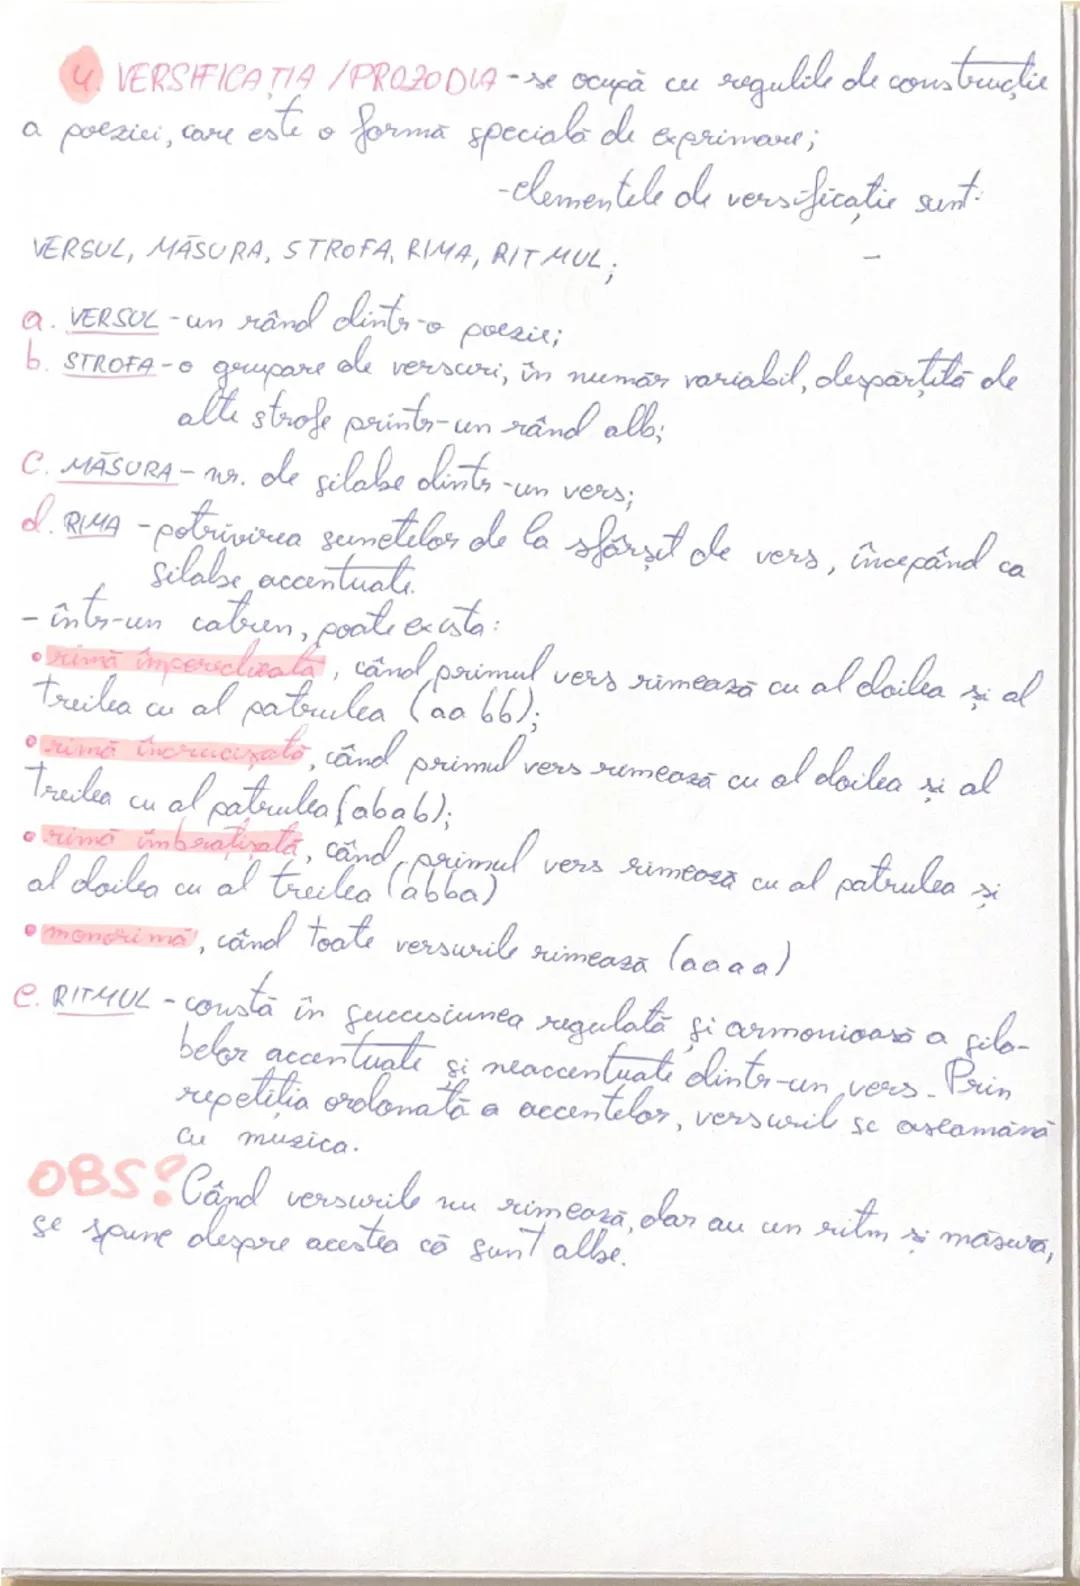 4. VERSIFICAȚIA / PROZODIA - se ocupă cu regulile de construcție
a poeziei, care este o formă specială de exprimare;
- elementele de versificație sunt:
VERSUL, MĂSURA, STROFA, RIMA, RITMUL;
a. VERSUL - un rând dintr-o poezie;
b. STROFA - o grupare de versuri, în număr variabil, despărțită de
alte strofe printr-un rând alb;
C. MĂSURA - nr. de silabe dintr-un vers;
d. RIMA - potrivirea sunetelor de la sfârșit de vers, începând ca
silabe accentuate.
- într-un catren, poate exista:
• rimă împerecheată, când primul vers rimează cu al doilea și al
treilea cu al patrulea (aabb);
• rimă încrucișată, când primul vers rimează cu al doilea și al
treilea cu al patrulea (abab);
• rimă îmbrățișată, când primul vers rimează cu al patrulea și
al doilea cu al treilea (abba)
• monorimă, când toate versurile rimează (aaaa)
e. RITMUL - constă în succesiunea regulată și armonioasă a sila-
belor accentuate și neaccentuate dintr-un vers. Prin
repetiția ordonată a accentelor, versurile se aseamănă
cu muzica.
OBS! Când versurile nu rimează, dar au un ritm și măsură,
se spune despre acestea că sunt albe.